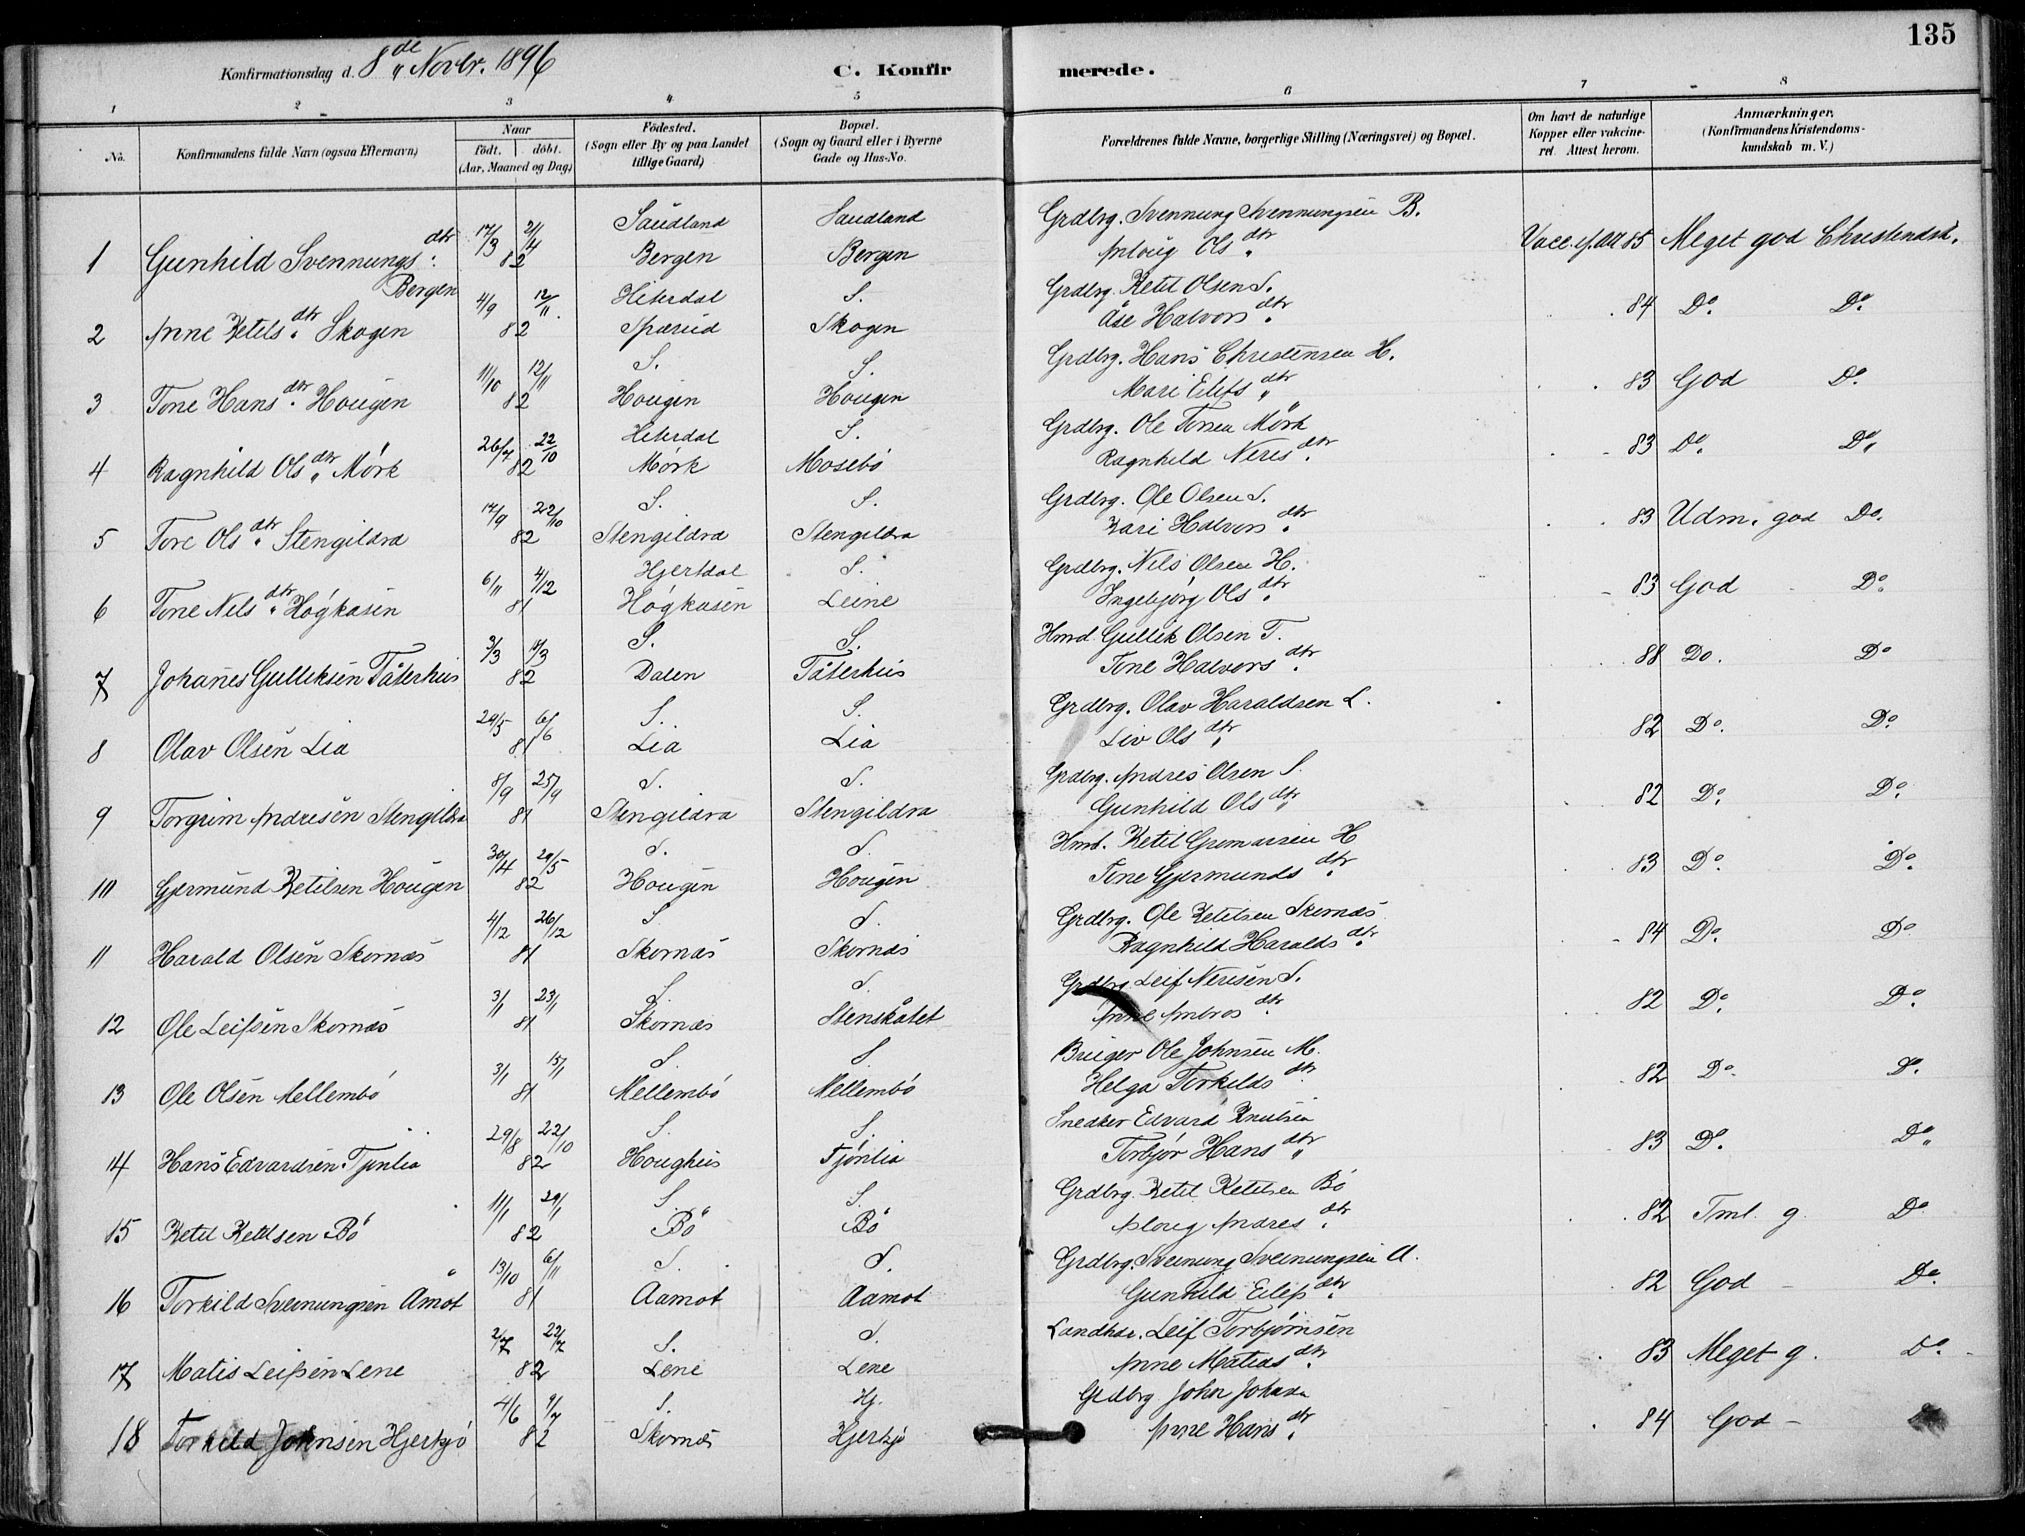 135
Konfirmationsdag d. 8de Novbr. 1896
C. Konfirmerede.
1 2 3 4 5 6 7 8
No. Konfirmandens fulde Navn (ogsaa Efternavn) Naar født. døbt. (Aar, Maaned og Dag.) Fødested. (Sogn eller By og paa Landet tillige Gaard) Bopæl. (Sogn og Gaard eller i Byerne Gade og Hus-No. Forældrenes fulde Navne, borgerlige Stilling (Næringsvei) og Bopæl. Om havt de naturlige Kopper eller vakcineret. Attest herom. Anmærkninger. (Konfirmandens Kristendomskundskab m. V.)
17/3 21/4 Saudland Saudland Grdbrg. Svennung Svennungsen B.
1 Gunhild Svennungsdtr. Bergen 82 Bergen Bergen Ols dtr. Vacc. 85 Meget god Christendsk.
4/9 12/11 Hiterdal S. Grdbrg. Ketil Olsen S.
2 Anne Ketilsdtr. Skogen 82 Sparud Skogen Åse Halvorsdtr. 84 Do. Do.
11/10 12/11 S. S. Grdbrg. Hans Christensen H.
3 Tone Hansdtr. Hougen 82 Hougen Hougen Mari Eilefsdtr. 83 God Do.
26/7 22/10 Hiterdal S. Grdbrg. Ole Torsen Mørk
4 Ragnhild Olsdtr. Mørk 82 Mørk Mosebø Ragnhild Neresdtr. 83 Do. Do.
17/9 22/10 S. S. Grdbrg. Ole Olsen S.
5 Tore Olsdtr. Stengildra 82 Stengildra Stengildra Kari Halvorsdtr. 83 Udm. god Do.
6/11 4/12 Hjertdal S. Grdbrg. Nils Olsen H.
6 Tone Nelsdtr. Høgkasin 81 Høgkasen Leine Ingebjørg Olsdtr. 83 God Do.
3/3 17/3 S. S. Hmd. Gullik Olsen T.
7 Johanes Gulliksen Tåterhus 82 Dalen Tåterhus Tone Halvorsdtr. 88 Do. Do
29/5 6/6 S. S. Grdbrg. Olav Haraldsen L.
8 Olav Olsen Lia 81 Lia Lia Liv Olsdtr. 82 Do. Do
8/9 25/9 S. S. Grdbrg. Andres Olsen S.
9 Torgrim Andresen Stengildra 81 Stengildra Stengildra Gunhild Olsdtr. 82 Do. Do.
30/4 29/5 S. S. Hmd. Ketil H
10 Gjermund Ketilsen Hougen 82 Hougen Hougen Tone Gjermundsdtr. 83 Do. Do.
4/12 26/12 S S. Grdbrg. Ole Ketilsen Skornæs
11 Harald Olsen Skornæs 81 Skornæs Skornæs Ragnhild Haraldsdtr. 84 Do. Do
3/1 23/1 S. S. Grdbrg. Leif Nerisen S.
12 Ole Leifsen Skornæs 81 Skornæs Stenskåtet Anne Ambrosdtr. 82 Do. Do.
3/1 15/1 S. S. Bruger Ole Johnsen M.
13 Ole Olsen Mellembø 81 Mellembø Mellembø Helga Torkildsdtr. 82 Do. Do.
29/8 22/10 S. S. Snedker Edvard Knutsen
14 Hans Edvardsen Tjønlia 82 Houghus Tjønlia Torbjør Hansdtr. 83 Do. Do.
11/1 29/1 S. S. Grdbrg. Ketil Ketilsen Bö
15 Ketil Ketilsen Bö 82 Bö Bö Aloug Andresdtr. 82 Tml. g. Do
13/10 6/11 S. S. Grdbrg. Sveinung Sveinungsen A.
16 Torkild Sveinungsen Åmot 81 Aamot Aamot Gunhild Eilefsdtr. 82 God Do.
2/7 22/7 S. S. Landhdl. Leif Torbjørnsen
17 Matis Leifsen Lene 82 Lene Lene Anne Matiasdtr. 83 Meget g. Do.
4/6 9/7 S. Hj. Grdbrg John Johnsen
18 Torkild Johnsen Hjerkjø 82 Skornæs Hjerkjø Anne Hansdtr. 84 God